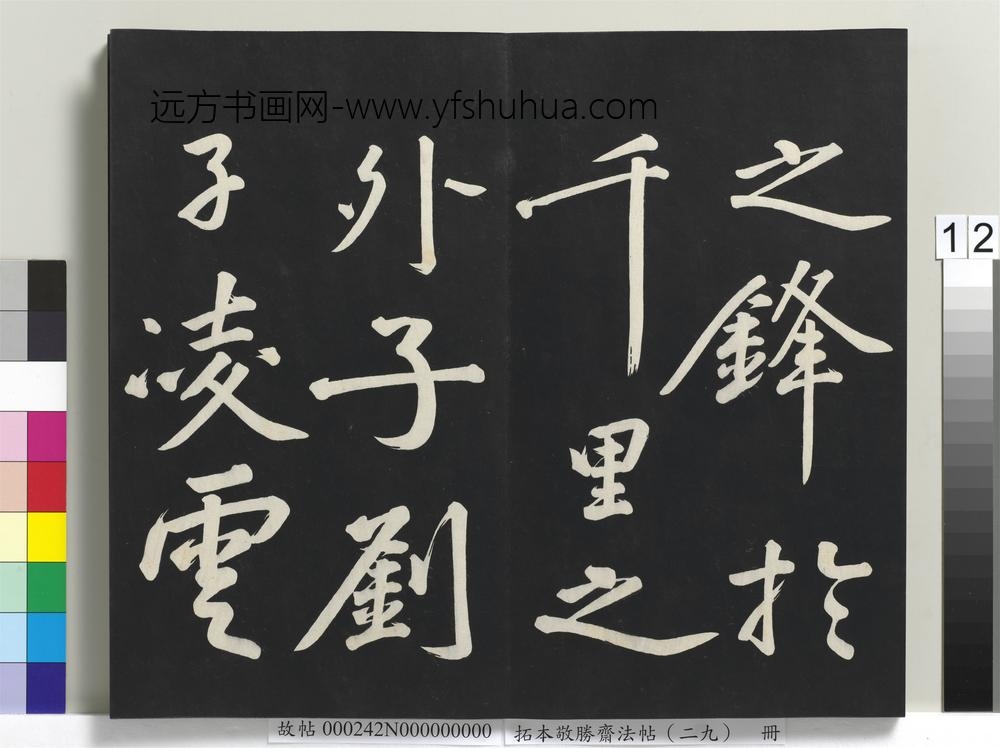 远方书画网-www.yfshuhua.com
之鋒於
千里之
外子劉
子凌雲
12
故帖 000242N000000000 拓本敬勝齋法帖（二九） 冊